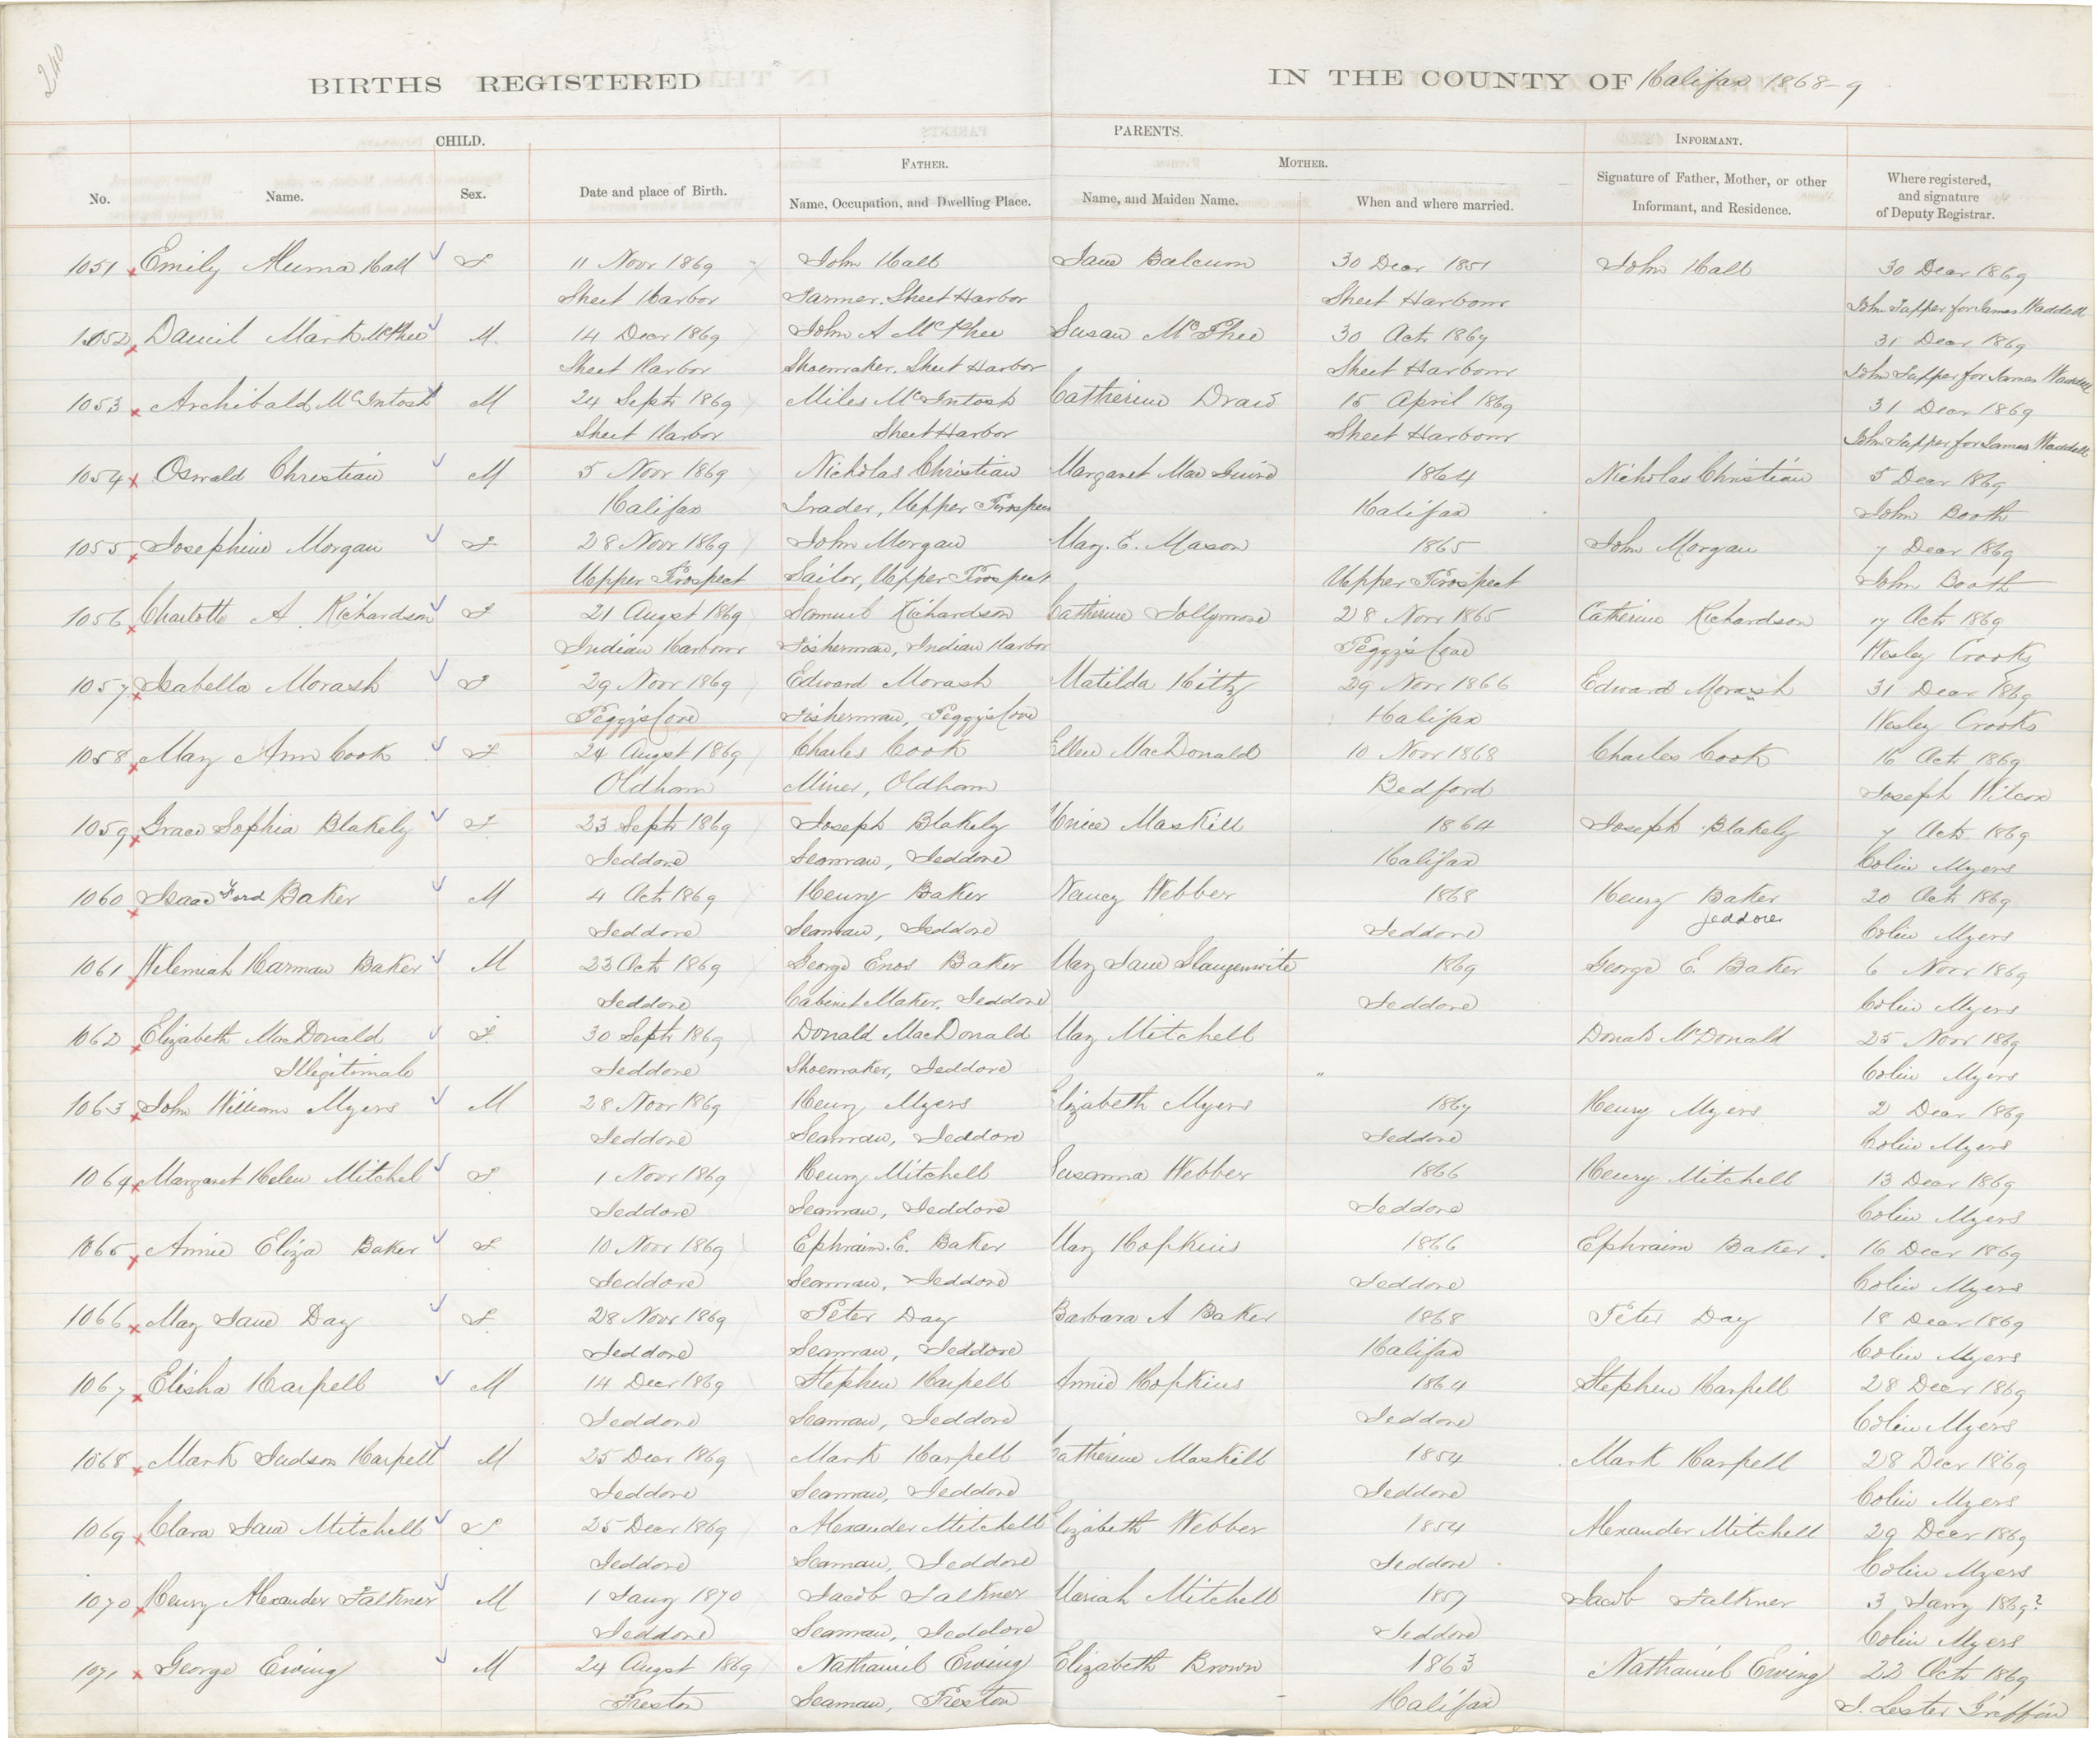 240
BIRTHS REGISTERED IN THE COUNTY OF Halifax 1868-9
CHILD. PARENTS. INFORMANT.
FATHER. MOTHER.
No. Name. Sex. Date and place of Birth. Name, Occupation, and Dwelling Place. Name, and Maiden Name. When and where married. Signature of Father, Mother, or other Informant, and Residence. Where registered, and signature of Deputy Registrar.
1051 Emily Hall F 11 Novr 1869 John Hall Jane Balcum 30 Decr 1851 John Hall 30 Decr 1869
Sheet Harbor Farmer. Sheet Harbor Sheet Harbour John Tupper for James Waddell
1052 Daniel Mark McPhee M. 14 Decr 1869 John A McPhee Susan McPhee 30 Octr 1867 31 Decr 1869
Sheet Harbor Shoemaker. Sheet Harbor Sheet Harbour John Tupper for James Waddell
1053 Archibald McIntosh M 24 Septr 1869 Miles McIntosh Catherine 15 April 1869 31 Decr 1869
Sheet Harbor Sheet Harbor Sheet Harbour John Tupper for James Waddell
1054 Oswald Christian M 5 Novr 1869 Nicholas Christian Margaret Mac Guire 1864 Nicholas Christian 5 Decr 1869
Halifax Trader, Upper Prospect Halifax John Booth
1055 Josephine Morgan F 28 Novr 1869 John Morgan Mary. E. Mason 1865 John Morgan 7 Decr 1869
Upper Prospect Sailor, Upper Prospect Upper Prospect John Booth
1056 Charlotte A Richardson F 21 Augst 1869 Samuel Richardson Catherine Jollymore 28 Novr 1865 Catherine Richardson 7 Octr 1869
Indian Harbour Fisherman, Indian Harbor Peggy's Cove Wesley Crooks
1057 Isabella Morash F 29 Novr 1869 Edward Morash Matilda 29 Novr 1866 Edward Morash 31 Decr 1869
Peggy's Cove Fisherman, Peggy's Cove Halifax Wesley Crooks
1058 Mary Ann Cook F 24 Augst 1869 Charles Cook Ellen MacDonald 10 Novr 1868 Charles Cook 16 Octr 1869
Oldham Miner, Oldham Bedford Joseph Wilcox
1059 Grace Sophia Blakely F 23 Septr 1869 Joseph Blakely Maskill 1864 Joseph Blakely 7 Octr 1869
Jeddore Seaman, Jeddore Halifax Colin Myers
1060 Isaac Ford Baker M 4 Octr 1869 Henry Baker Nancy Webber 1868 Henry Baker 20 Octr 1869
Jeddore Seaman, Jeddore Jeddore Jeddore Colin Myers
1061 Nehemiah Harman Baker M 23 Octr 1869 George Enos Baker Mary Jane Slaugenwite 1869 George E. Baker 6 Novr 1869
Jeddore Cabinet Maker, Jeddore Jeddore Colin Myers
1062 Elizabeth MacDonald F 30 Septr 1869 Donald MacDonald Mary Mitchell Donald McDonald 25 Novr 1869
Illegitimate Jeddore Shoemaker, Jeddore " Colin Myers
1063 John William Myers M 28 Novr 1869 Henry Myers Elizabeth Myers 1867 Henry Myers 2 Decr 1869
Jeddore Seaman, Jeddore Jeddore Colin Myers
1064 Margaret Helen Mitchel F 1 Novr 1869 Henry Mitchell Susanna Webber 1866 Henry Mitchell 13 Decr 1869
Jeddore Seaman, Jeddore Jeddore Colin Myers
1065 Annie Eliza Baker F 10 Novr 1869 Ephraim. E. Baker Mary Hopkins 1866 Ephraim Baker. 16 Decr 1869
Jeddore Seaman, Jeddore Jeddore Colin Myers
1066 May Jane Day F 28 Novr 1869 Peter Day Barbara A Baker 1868 Peter Day 18 Decr 1869
Jeddore Seaman, Jeddore Halifax Colin Myers
1067 Elisha Harpell M 14 Decr 1869 Stephen Harpell Annie Hopkins 1864 Stephen Harpell 28 Decr 1869
Jeddore Seaman, Jeddore Jeddore Colin Myers
1068 Mark Judson Harpell M 25 Decr 1869 Mark Harpell Catherine Maskill 1854 Mark Harpell 28 Decr 1869
Jeddore Seaman, Jeddore Jeddore Colin Myers
1069 Clara Jane Mitchell F 25 Decr 1869 Alexander Mitchell Elizabeth Webber 1854 Alexander Mitchell 29 Decr 1869
Jeddore Seaman, Jeddore Jeddore Colin Myers
1070 Henry Alexander Falkner M 1 Jany 1870 Jacob Falkner Mariah Mitchell 1857 Jacob Falkner 3 Jany 1869?
Jeddore Seaman, Jeddore Jeddore Colin Myers
1071 George Ewing M 24 Augst 1869 Nathaniel Ewing Elizabeth Brown 1863 Nathaniel Ewing 22 Octr 1869
Preston Seaman, Preston Halifax J. Lester Griffin